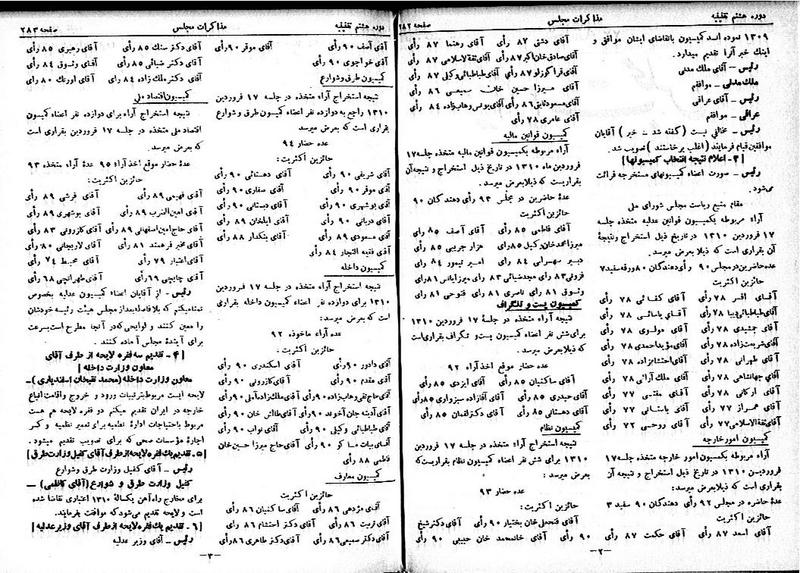 دوره هشتم تقنینیه
مذاکرات مجلس
صفحه ۲۸۲
۱۳۰۹ نموده است کمیسیون با تقاضای ایشان موافق و
اینک خبر آنرا تقدیم میدارد.
رئیس - آقای ملک مدنی
ملک مدنی - موافقم
رئیس - آقای عراقی
عراقی - موافقم
رئیس - مخالفی نیست (گفته شد - خیر) آقایان
موافقین قیام فرمایند (اغلب برخاستند) تصویب شد.
[۳- اعلام نتیجه انتخاب کمیسیونها]
رئیس - صورت اعضاء کمیسیونهای مستخرجه قرائت
می‌شود.
مقام منیع ریاست مجلس شورای ملی
آراء مربوطه بکمیسیون قوانین عدلیه متخذه جلسه
۱۷ فروردین ۱۳۱۰ در تاریخ ذیل استخراج و نتیجه
آن بقراری است که ذیلا بعرض میرسد:
عده حاضرین در مجلس ۹۰ رأی دهندگان ۸۰ ورقه سفید ۷
حائزین اکثریت
آقای افسر ۷۸ رأی آقای کفائی ۷۸ رأی
آقای طباطبائی دیبا ۷۸ رأی آقای یاسائی ۷۸ رأی
آقای جمشیدی ۷۸ رأی آقای مولوی ۷۸ رأی
آقای شریعت زاده ۷۸ رأی آقای مؤید احمدی ۷۸ رأی
آقای طهرانی ۷۸ رأی آقای احتشام زاده ۷۸ رأی
آقای جهانشاهی ۷۸ رأی آقای ملک آرائی ۷۸ رأی
آقای اورکانی ۷۸ رأی آقای مقدس ۷۷ رأی
آقای همراز ۷۷ رأی آقای باستانی ۷۷ رأی
آقای ثقة الاسلامی ۷۷ رأی آقای روحی ۷۷ رأی
کمیسیون امور خارجه
آراء مربوطه بکمیسیون امور خارجه متخذه جلسه ۱۷
فروردین ۱۳۱۰ در تاریخ ذیل استخراج و نتیجه آن
بقراری است که ذیلا بعرض میرسد:
عده حاضره در مجلس ۹۲ رأی دهندگان ۹۰ سفید ۳
حائزین اکثریت
آقای اسعد ۸۷ رأی آقای حکمت ۸۷ رأی
آقای دشتی ۸۷ رأی آقای رهنما ۸۷ رأی
آقای صادق خان اکبر ۸۷ رأی آقای ثقة الاسلامی ۸۷ رأی
آقای قراگزلو ۸۷ رأی آقای طباطبائی وکیلی ۸۷ رأی
آقای میرزا حسین خان سمیعی ۸۶ رأی
آقای مسعود ثابتی ۸۶ رأی آقای یونس وهاب زاده ۸۴ رأی
آقای عامری ۷۸ رأی
کمیسیون قوانین مالیه
آراء مربوطه بکمیسیون قوانین مالیه متخذه جلسه ۱۷
فروردین ماه ۱۳۱۰ در تاریخ ذیل استخراج و نتیجه آن
بقراریست که ذیلا بعرض میرسد.
عده حاضرین در مجلس ۹۳ رأی دهندگان ۹۰
حائزین اکثریت
آقای فاطمی ۸۵ رأی آقای آصف ۸۵ رأی
میرزا عبدخان وکیل ۸۵ رأی هزار جریبی ۸۵ رأی
دبیر سهرابی ۸۴ رأی امیر تیمور ۸۴ رأی
فزونی ۸۳ رأی مجد ضیائی ۸۳ رأی میرزایانس ۸۱ رأی
وثوق ۸۱ رأی ناصری ۸۱ رأی فتوحی ۸۱ رأی
کمیسیون پست و تلگراف
نتیجه آراء متخذه در جلسه ۱۷ فروردین ۱۳۱۰
برای شش نفر اعضاء کمیسیون پست و تلگراف بقراری است
که ذیلا بعرض میرسد.
عده حضار موقع اخذ آراء ۹۲
آقای ساکنیان ۸۵ رأی آقای ایزدی ۸۵ رأی
آقای حیدری ۸۵ رأی آقای آقا زاده سبزواری ۸۵ رأی
آقای دهستانی ۸۵ رأی آقای دکتر لقمان ۸۵ رأی
کمیسیون نظام
نتیجه استخراج آراء متخذه در جلسه ۱۷ فروردین
۱۳۱۰ برای شش نفر اعضاء کمیسیون نظام بقراریست که
بعرض میرسد:
عده حضار ۹۳
حائزین اکثریت:
آقای فتحعلی خان بختیار ۹۰ رأی آقای دکتر شیخ
۹۰ رأی آقای خانمحمد خان حبیبی ۹۰ رأی
-۲-
دوره هشتم تقنینیه
مذاکرات مجلس
صفحه ۲۸۳
آقای آصف ۹۰ رأی آقای موقر ۹۰ رأی
آقای خواجوی ۹۰ رأی
کمیسیون طرق و شوارع
نتیجه استخراج آراء متخذه در جلسه ۱۷ فروردین
۱۳۱۰ راجع به دوازده نفر اعضاء کمیسیون طرق و شوارع
بقراری است که بعرض میرسد
عده حضار ۹۴
حائزین اکثریت:
آقای شریفی ۹۰ رأی آقای دهستانی ۹۰ رأی
آقای موقر ۹۰ رأی آقای صفاری ۹۰ رأی
آقای بوشهری ۹۰ رأی آقای دبستانی ۹۰ رأی
آقای دربانی ۹۰ رأی آقای ایلخان ۸۹ رأی
آقای مسعودی ۸۹ رأی آقای بنکدار ۸۸ رأی
آقای فتیه التجار ۸۴ رأی
کمیسیون داخله
نتیجه استخراج آراء متخذه در جلسه ۱۷ فروردین
۱۳۱۰ برای دوازده نفر اعضاء کمیسیون داخله بقراری
است که بعرض میرسد:
عده آراء ماخوذه ۹۲
حائزین اکثریت:
آقای دادور ۹۰ رأی آقای اسکندری ۹۰ رأی
آقای مقدم ۹۰ رأی آقای کازرونی ۹۰ رأی
آقای حاج تقی وهاب زاده ۹۰ رأی آقای ملک زاده آملی ۹۰ رأی
آقای آدینه جان آخوند ۹۰ رأی آقای طالش خان ۹۰ رأی
آقای طباطبائی وکیلی ۹۰ رأی آقای نواب ۹۰ رأی
آقای بیات ماکو ۹۰ رأی آقای حاج میرزا حسین خان
فاطمی ۸۸ رأی
کمیسیون معارف
حائزین اکثریت
آقای مژدهی ۸۶ رأی آقای ساکنیان ۸۶ رأی
آقای تربیت ۸۶ رأی آقای دکتر احتشام ۸۶ رأی
آقای دکتر سمیعی ۸۶ رأی آقای دکتر طاهری ۸۶ رأی
آقای دکتر سنک ۸۵ رأی آقای رهبری ۸۵ رأی
آقای دکتر ضیائی ۸۵ رأی آقای وثوق ۸۴ رأی
آقای دکتر ملک زاده ۸۴ رأی آقای اورنک ۸۰ رأی
کمیسیون اقتصاد ملی
نتیجه استخراج آراء برای دوازده نفر اعضاء کمیسیون
اقتصاد ملی متخذه در جلسه ۱۷ فروردین بقراری است
که بعرض میرسد
عده حضار موقع اخذ آراء ۹۵ عده آراء متخذه ۹۳
حائزین اکثریت:
آقای فهیمی ۸۹ رأی آقای فرشی ۸۹ رأی
آقای امین الضرب ۸۹ رأی آقای بوشهری ۸۹ رأی
آقای حاج امین اصفهانی ۸۹ رأی آقای کازرونی ۸۳ رأی
آقای مخبر فرهمند ۸۱ رأی آقای لاریجانی ۸۰ رأی
آقای اعتبار ۷۹ رأی آقای محیط ۷۴ رأی
آقای چایچی ۶۹ رأی آقای طهرانچی ۶۸ رأی
رئیس - از آقایان اعضاء کمیسیون عدلیه بخصوص
تمنا میکنم که بلافاصله بعد از مجلس هیئت رئیسه خودشان
را معین کنند و لوایحی که در آنجا مطرح است بسرعت
برای آتیه مجلس آماده کنند.
[۴- تقدیم سه فقره لایحه از طرف آقای
معاون وزارت داخله]
معاون وزارت داخله (محمد نقیخان اسفندیاری) -
لایحه ایست مربوط بترتیبات ورود و خروج و اقامت اتباع
خارجه در ایران تقدیم میکنم دو فقره لایحه هم هست
مربوط باحتیاجات ادارهٔ نظمیه برای تعمیر نظمیه و کسر
اجارهٔ مؤسسات صحی که برای تصویب تقدیم میشود.
[۵- تقدیم یک فقره لایحه از طرف آقای کفیل وزارت طرق]
رئیس - آقای کفیل وزارت طرق و شوارع
کفیل وزارت طرق و شوارع (آقای کاظمی) -
برای مخارج راه آهن یکسالهٔ ۱۳۱۰ اعتباری تقاضا شده
است و لایحه تقدیم می‌شود که موافقت بفرمایند.
[۶- تقدیم یک فقره لایحه از طرف آقای وزیر عدلیه]
رئیس - آقای وزیر عدلیه
-۳-